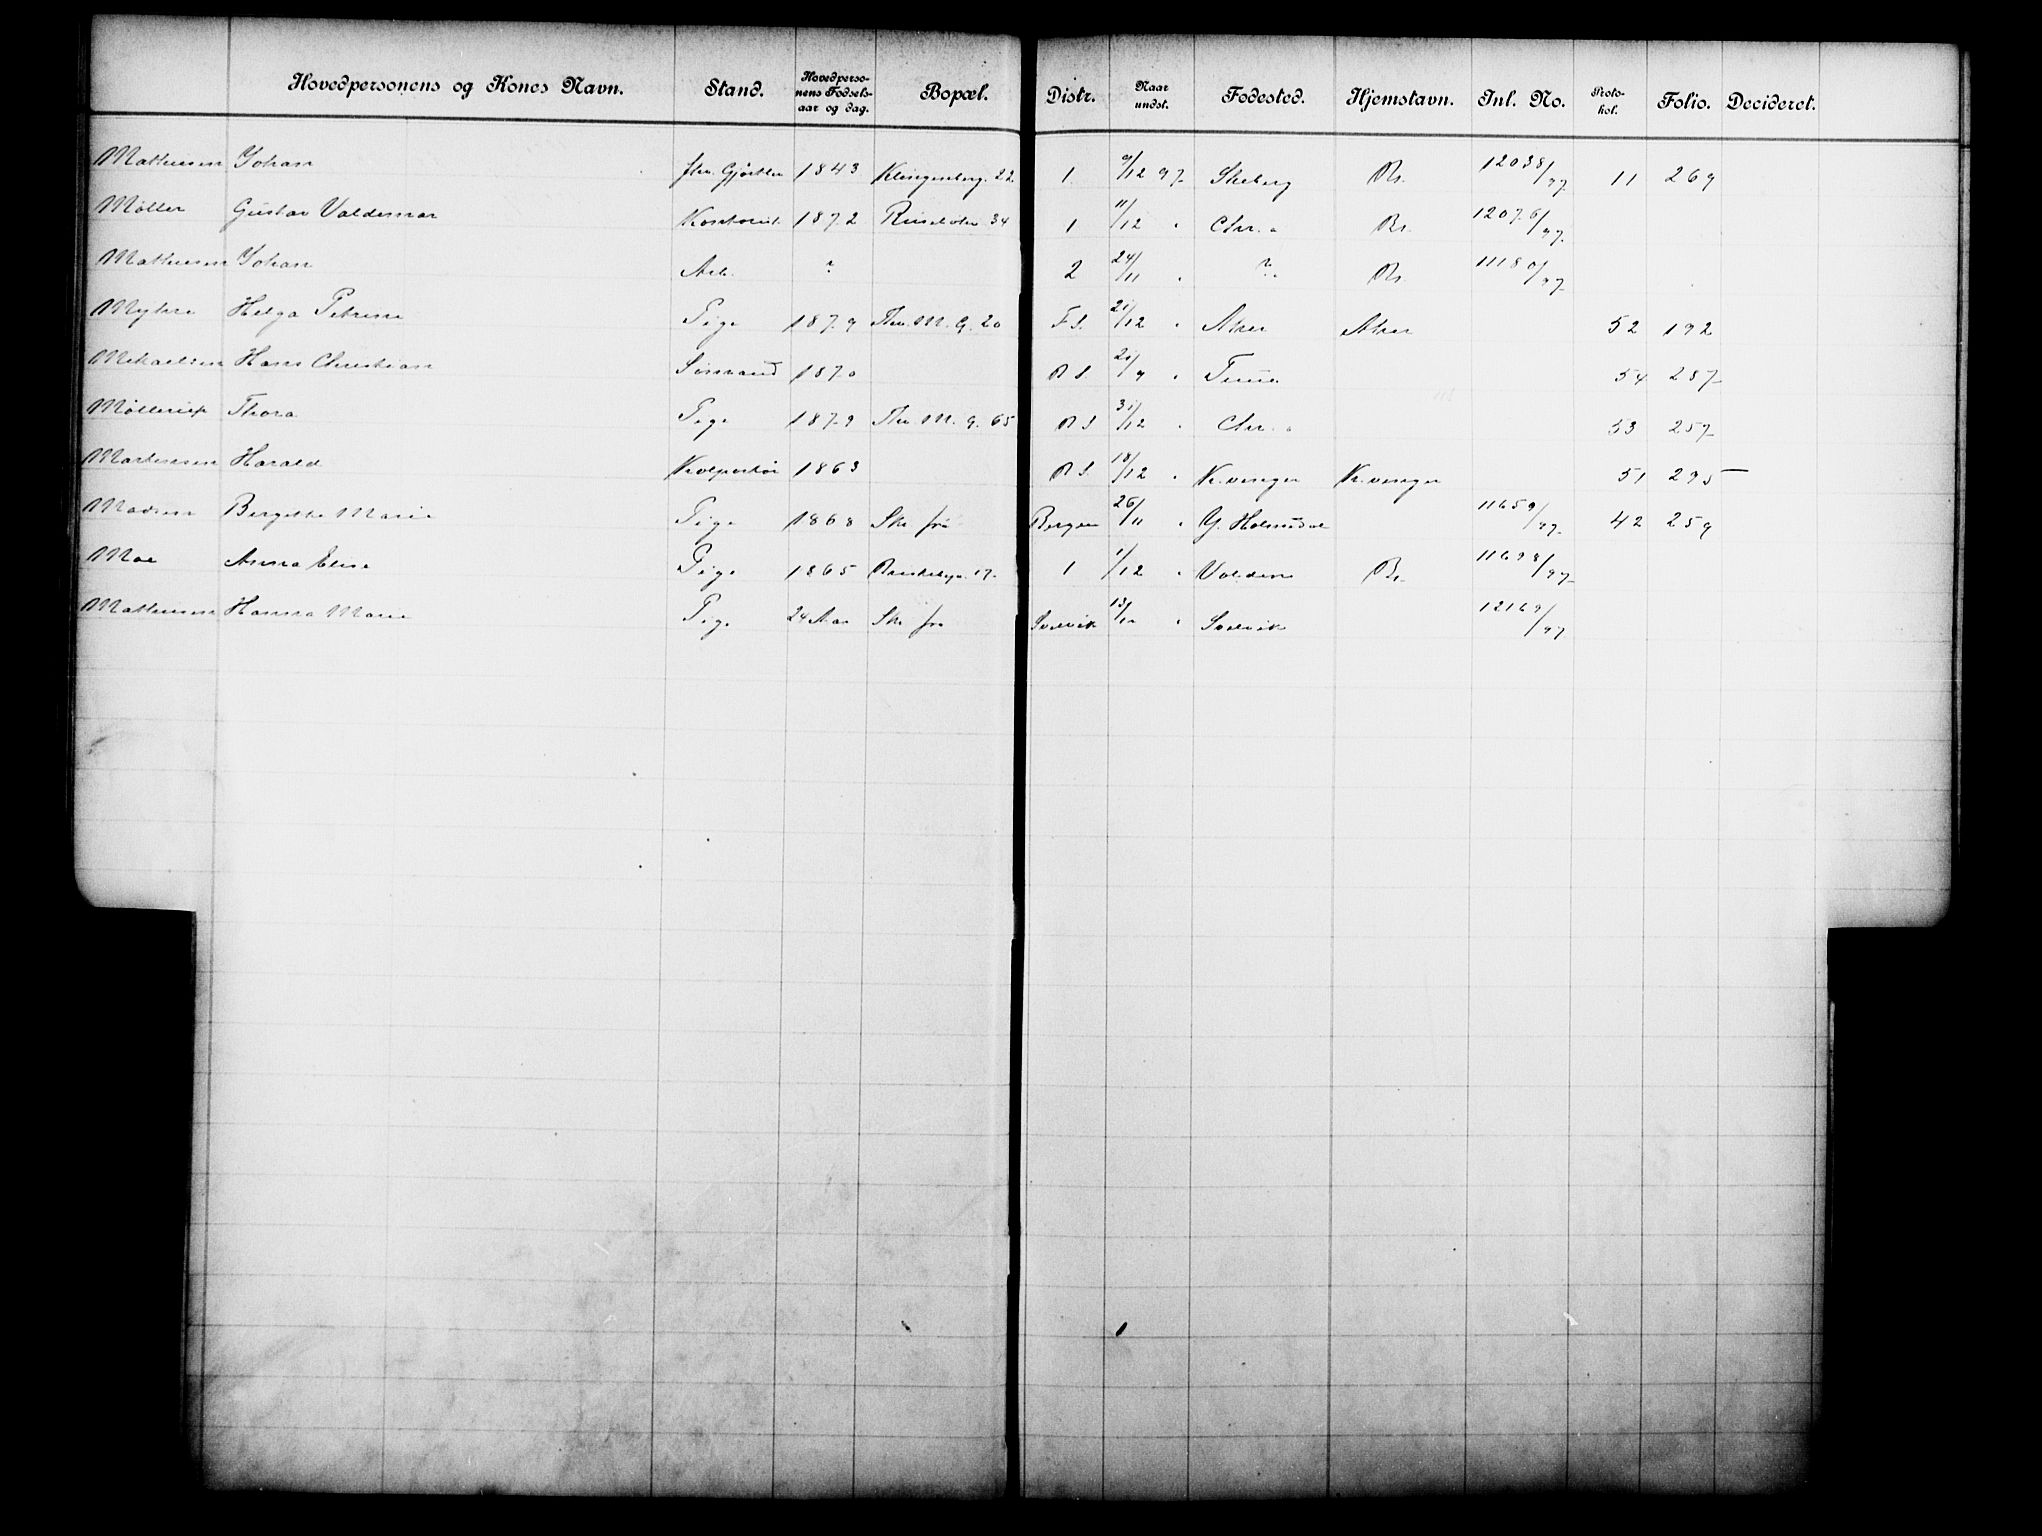 Hovedpersonens og Kones Navn. Stand. Hovedpersonens Fødselsaar og dag. Bopæl. Distr. Naar undst. Fødested. Hjemstavn. Inl. No. Protokol. Folio. Decideret.
Mathiesen Johan fhv. Gjørtler 1843 Klingenberg. 22 1. 9/12 97 Skeberg Rs. 12038/97 11 269
Møller Gustav Valdemar Kontorist 1872 Ruseløkv. 34 1 11/12 " Chr.a Rs. 12076/97
Mathiesen Johan Arb. ? 2 24/11 " ? Rs. 11180/97
Myhre Helga Petrine Pige 1879 Thv. M. G. 20 F S. 21/12 " Aker Aker 52 192
Mikaelsen Hans Christian Sømand 1870 R S. 21/9 " Tune 54 287
Møllerup Thora Pige 1879 Thv. M. G. 65 R S 31/12 " Chr.a 53 257
Martinsen Harald Kolportør 1863 R S. 18/12 " K.vinger K.vinger 51 295
Madsen Bergitte Marie Pige 1868 Skr. fra Bergen 26/11 " Y. Holmedal 11659/97 42 259
Moe Anna Elise Pige 1865 Briskebyv. 17. 1 1/12 " Volden Rs. 11698/97
Mathiesen Hanna Marie Pige 24 Aar Skr fra Svelvik 13/12 " Svelvik 12169/97